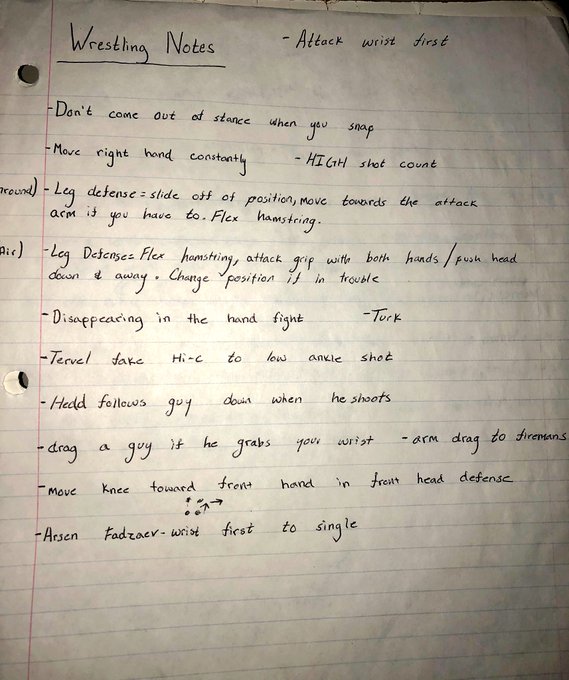 Wrestling Notes - Attack wrist first
- Don't come out of stance when you snap
- Move right hand constantly - HIGH shot count
round) - Leg defense = slide off of position, move towards the attack
arm if you have to. Flex hamstring.
Air) - Leg Defense = Flex hamstring, attack grip with both hands / push head
down & away. Change position if in trouble
- Disappearing in the hand fight - Turk
- Tervel fake Hi-c to low ankle shot
- Hedd follows guy down when he shoots
- drag a guy if he grabs your wrist - arm drag to firemans
- move knee toward front hand in front head defense
- Arsen Fadzaev - wrist first to single